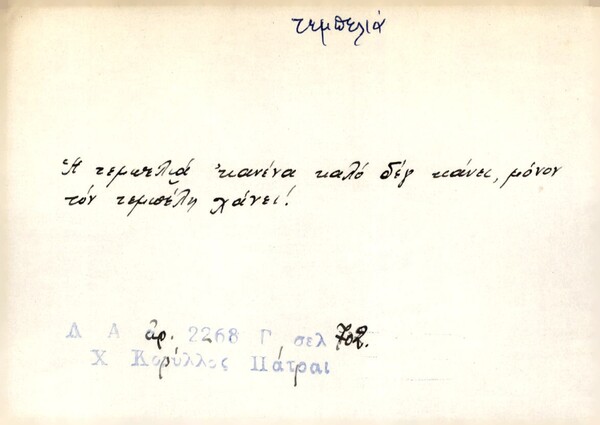 τεμπελιά
Ἡ τεμπελιά κανένα καλό δέν κάνει, μόνον
τόν τεμπέλη χάνει!
Λ Α ἀρ. 2268 Γ σελ 702.
Χ Κορύλλος Πάτραι